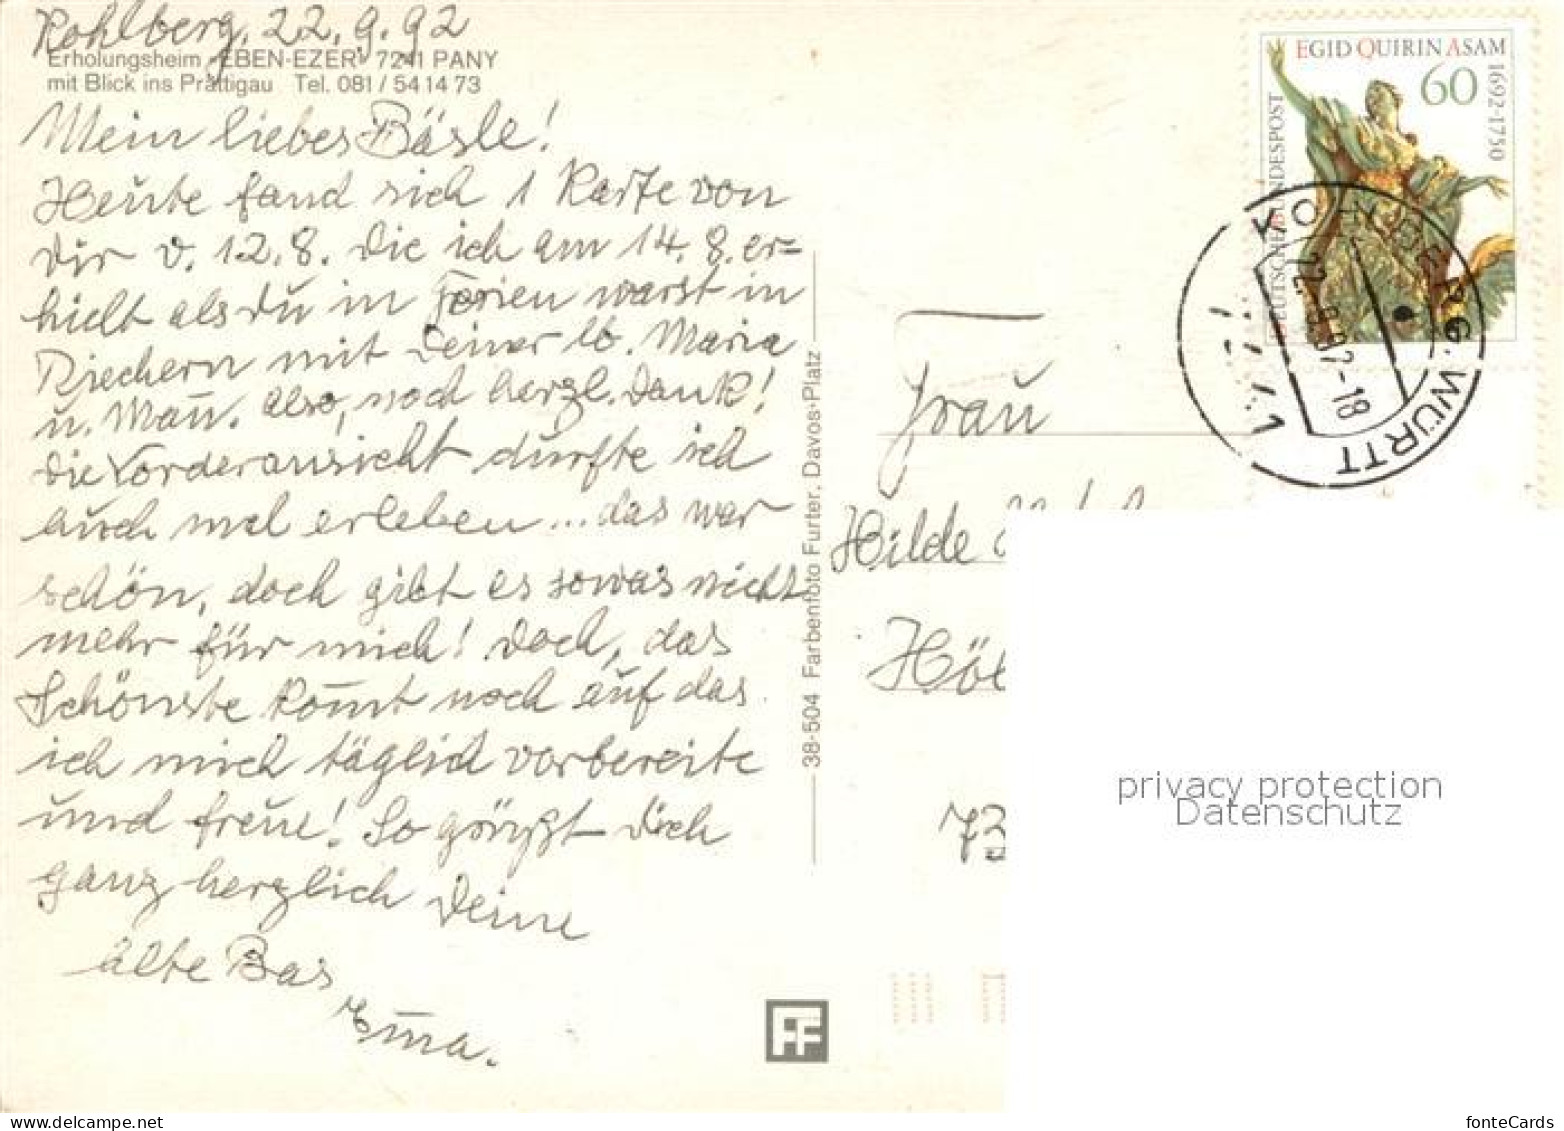 Kohlberg, 22.9.92
Erholungsheim "EBEN-EZER" 7241 PANY
mit Blick ins Prättigau Tel. 081 / 54 14 73
Mein liebes Bäsle!
Heute fand sich 1 Karte von
Dir v. 12.8. die ich am 14.8. er=
hielt als Du in Ferien warst in
Riechern mit Deiner lb. Maria
u. Mañ. Also, noch herzl. Dank!
Die Vorderansicht durfte ich
auch mal erleben ... das war
schön, doch gibt es sowas nicht
mehr für mich! Doch, das
Schönste kom̄t noch auf das
ich mich täglich vorbereite
und freue! So grüßt Dich
ganz herzlich Deine
alte Bas
Em̄a.
38-504 Farbenfoto Furter, Davos-Platz
FF
EGID QUIRIN ASAM
1692-1750
60
DEUTSCHE BUNDESPOST
KOHLBERG, WÜRTT
22.-9.92-18
Frau
Hilde
Höl
73
privacy protection
Datenschutz
fonteCards